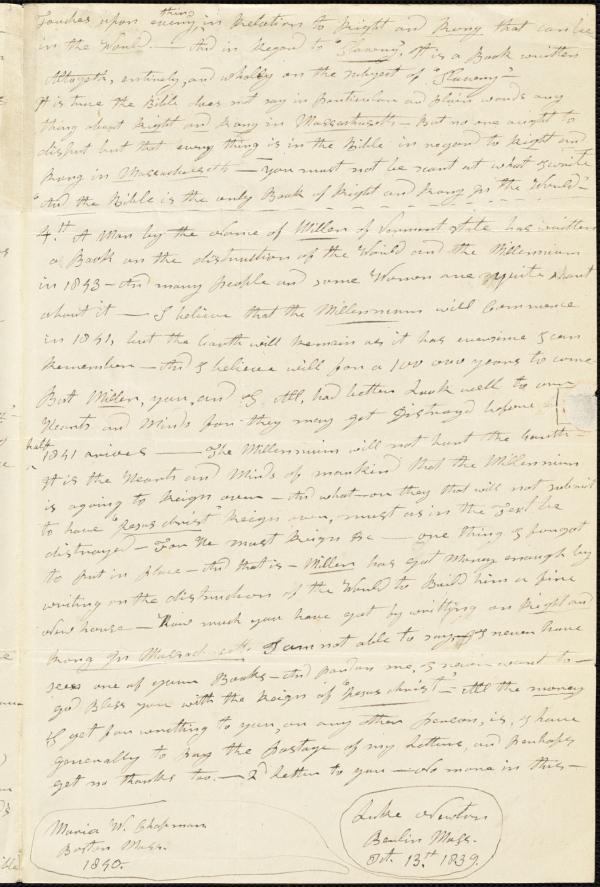 Touches upon every thing in Relation to Right and Rong that can be
in the World — And in Regard to "Slavery". It is a Book written
Altogeth, entirely, and wholly on the subject of "Slavery" —
It is true the Bible does not say in Particulars and Plain words any
thing about Right and Rong in Massachusetts — But no one aught to
disput but that every thing is in the Bible in regard to Right and
Rong in Massachusetts — You must not be scant at what I write
"And the Bible is the only Book of Right and Rong In the World"
4.th A Man by the Name of Miller of Vermont State has written
a Book on the distruction of the World and the Millennium
in 1843 — And many People and some Women are quite about
about it — I believe that the Millennium will Commence
in 1841, but the Earth will Remain as it has evensince I can
Remember — And I believe will for a 100 000 years to come
But Miller, you, and I, All, had better Look well to our
Hearts and Minds for they may get Distroyd before
half 1841 arives — The Millennium will not hurt the Earth —
It is the Hearts and Minds of mankind that the Millennium
is agoing to Reign over — And what — or they that will not submit
to have "Jesus Christ" Reign over, must as in the Text be
distroyed — For He must Reign &c — one thing I forgot
to Put in Place — And that is — Miller has Got Money enough by
writing on the distruction of the World to Build him a fine
New house — How much you have got by writting on Right and
Rong In Massachusetts I am not able to say I never have
seen one of your Books — And Pardon me, I never want to —
god Bless you with the Reign of "Jesus Christ" — All the money
I get for writing to you, or any other Person, is, I have
generally to Pay the Postage of my Letters, and Perhaps
get no thanks too. — 2d Letter to you — No more in this —
Maria W. Chapman
Boston Mass.
1840.
Luke Newton
Berlin Mass.
Oct. 13th 1839.